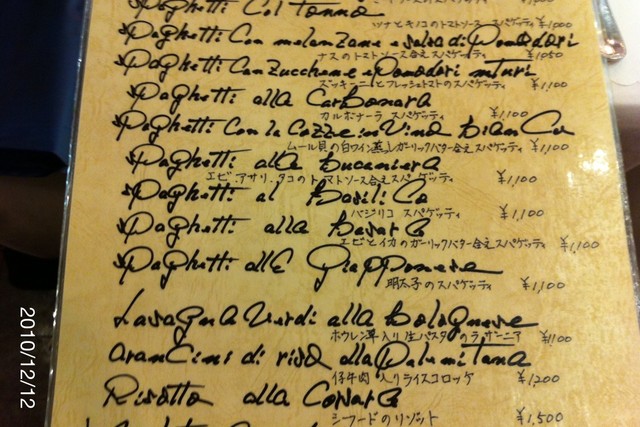 Spaghetti Col Tonno
ツナとキノコのトマトソース スパゲッティ ¥1,000
Spaghetti Con melanzane e salsa di Pomodori
ナスのトマトソース合え スパゲッティ ¥1,050
Spaghetti Con Zucchine e Pomodori maturi
ズッキーニとフレッシュトマトのスパゲッティ ¥1,100
Spaghetti alla Carbonara
カルボナーラ スパゲッティ ¥1,100
Spaghetti Con la Cozze in Vino Bianco
ムール貝の白ワイン蒸しガーリックバター合え スパゲッティ ¥1,100
Spaghetti alla Bucaniera
エビ、アサリ、タコのトマトソース合えスパゲッティ ¥1,100
Spaghetti al Basilico
バジリコ スパゲッティ ¥1,100
Spaghetti alla
エビとイカのガーリックバター合え スパゲッティ ¥1,100
Spaghetti alla Giapponese
明太子のスパゲッティ ¥1,100
Lasagna Verdi alla Bolognese
ホウレン草入り生パスタのラザーニア ¥1100
Arancini di riso alla Palermitana
仔牛肉入りライスコロッケ ¥1,200
Risotto alla
シーフードのリゾット ¥1,500
2010/12/12